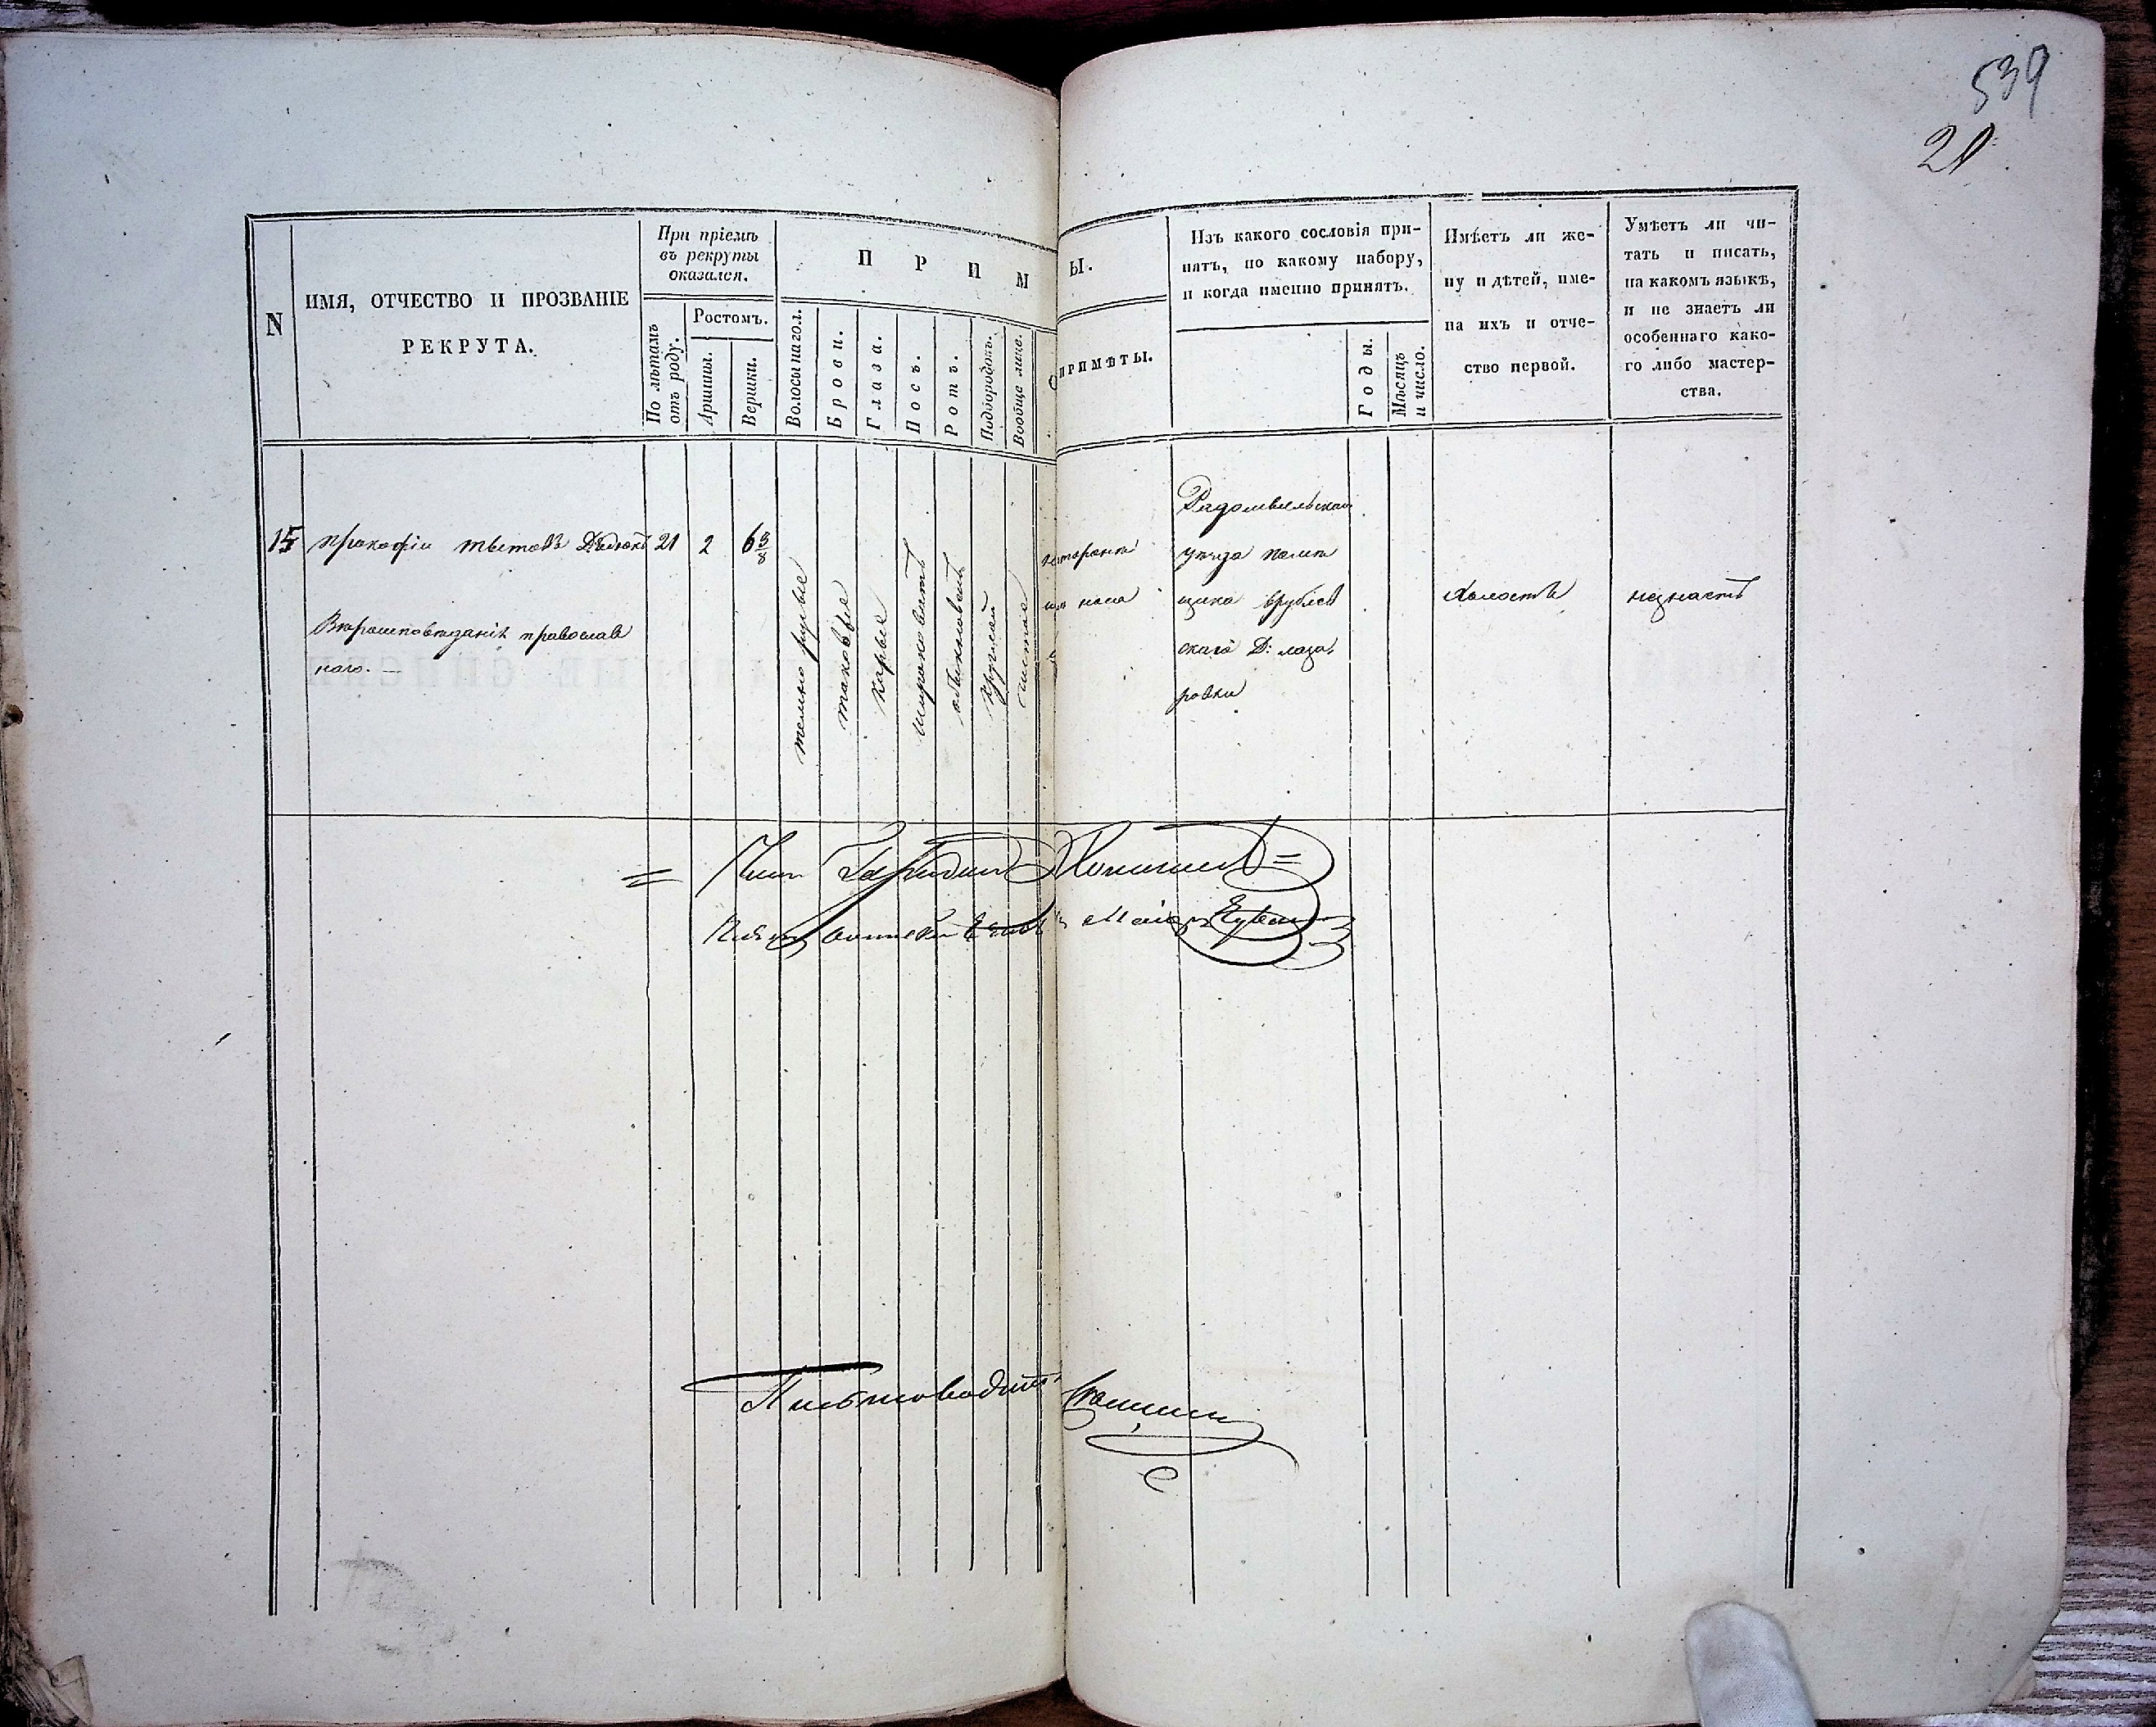 539
21
N
ИМЯ, ОТЧЕСТВО И ПРОЗВАНІЕ
РЕКРУТА.
При пріемѣ
въ рекруты
оказался.
По лѣтамъ
отъ роду.
Ростомъ.
Аршины.
Вершки.
П Р И М
Волосы на гол.
Брови.
Глаза.
Носъ.
Ротъ.
Подбородокъ.
Вообще лице.
Ы.
ПРИМѢТЫ.
Изъ какого сословія при-
нятъ, по какому набору,
и когда именно принятъ.
Годы.
Мѣсяцъ
и число.
Имѣетъ ли же-
ну и дѣтей, име-
на ихъ и отче-
ство первой.
Умѣетъ ли чи-
тать и писать,
на какомъ языкѣ,
и не знаетъ ли
особеннаго како-
го либо мастер-
ства.
15 прокофіи титовъ 21 2 6 3/8
Вѣроисповѣданія православ
наго.
темно русые
таковые
карые
широковатъ
обыкновенъ
круглой
чистое
носа
Радомысльскаго
уѣзда помѣ
щика врублев
скаго Д: лаза
ровки
холостъ
незнаетъ
Письмоводит